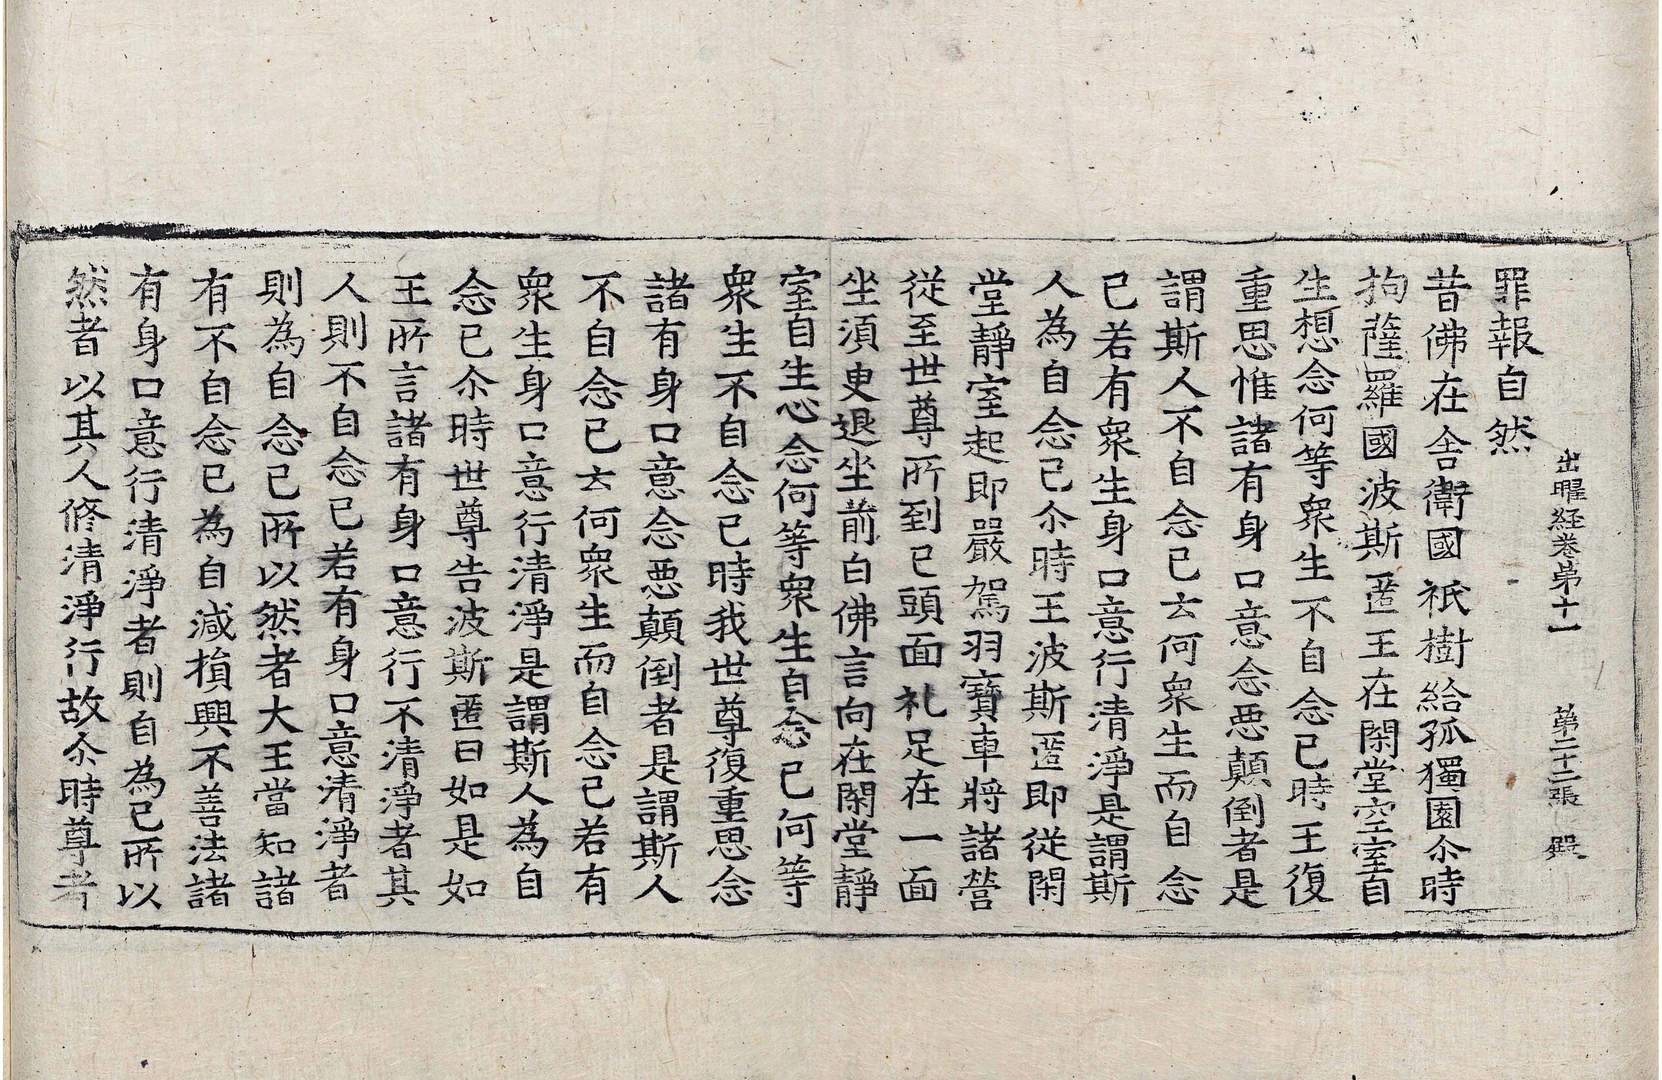 出曜経卷苐十一　苐二十二張　殿
罪報自然
昔佛在舎衛國祇樹給孤獨園尒時
拘薩羅國波斯匿王在閑堂空室自
生想念何等衆生不自念已時王復
重思惟諸有身口意念惡顛倒者是
謂斯人不自念已云何衆生而自念
已若有衆生身口意行清淨是謂斯
人為自念已尒時王波斯匿即從閑
堂靜室起即嚴駕羽寶車將諸營
從至世尊所到已頭面礼足在一面
坐須臾退坐前白佛言向在閑堂靜
室自生心念何等衆生自念已何等
衆生不自念已時我世尊復重思念
諸有身口意念惡顛倒者是謂斯人
不自念已云何衆生而自念已若有
衆生身口意行清淨是謂斯人為自
念已尒時世尊告波斯匿曰如是如
王所言諸有身口意行不清淨者其
人則不自念已若有身口意清淨者
則為自念已所以然者大王當知諸
有不自念已為自減損興不善法諸
有身口意行清淨者則自為已所以
然者以其人修清淨行故尒時尊者